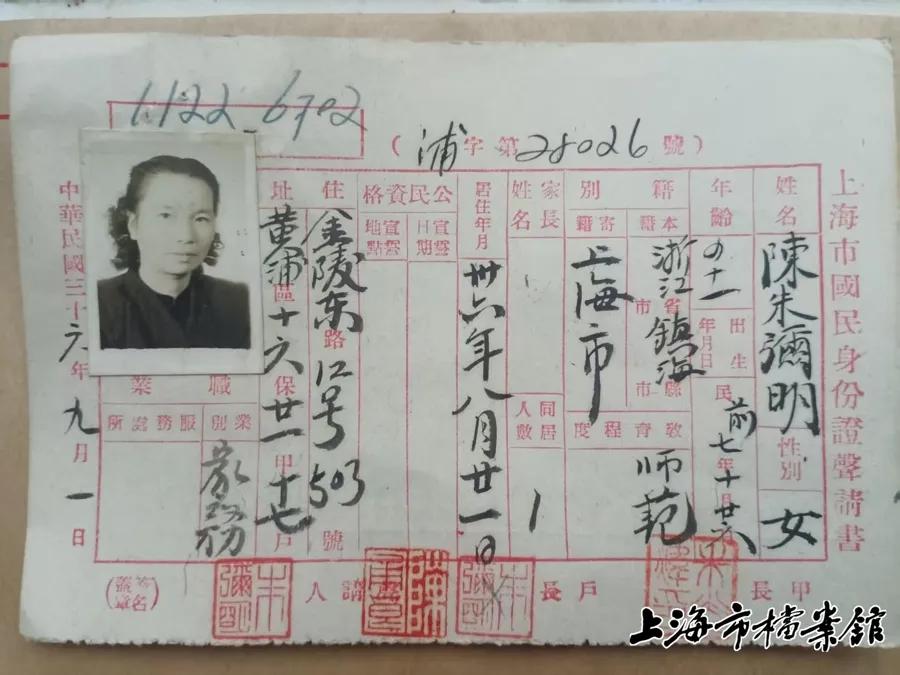 1122 6702
（浦字第28026號）
上海市國民身份證聲請書
姓名 陳朱彌明 性別 女
年齡 四十一 出生年月日 民前七年十月廿六
籍別 本籍 浙江省鎮海縣市
寄籍 上海市
教育程度 师范
家長姓名
同居人數 1
居住年月 卅六年八月廿一日
公民資格 宣誓日期
宣誓地點
住址 金陵东路12号503號
黄浦區十六保廿一甲十七戶
職業 業別 家務
服務處所
中華民國三十六年九月一日
甲長
戶長
聲請人
（簽名蓋章）
朱彌明
上海市檔案館